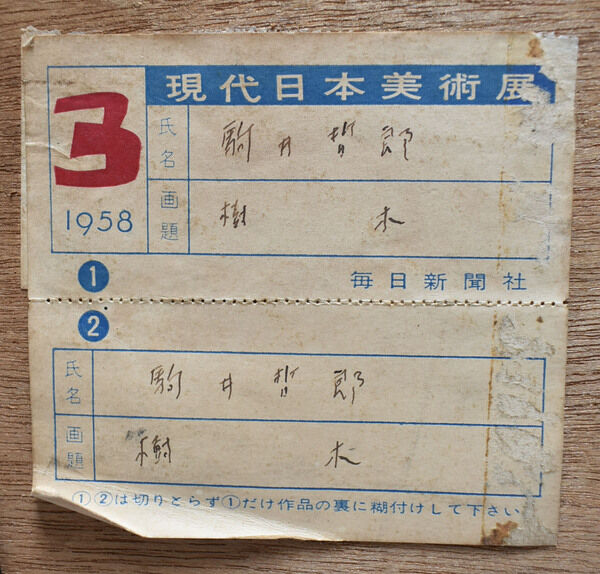 3
現代日本美術展
1958
氏名 駒井哲郎
画題 樹木
① 毎日新聞社
②
氏名 駒井哲郎
画題 樹木
①②は切りとらず①だけ作品の裏に糊付けして下さい